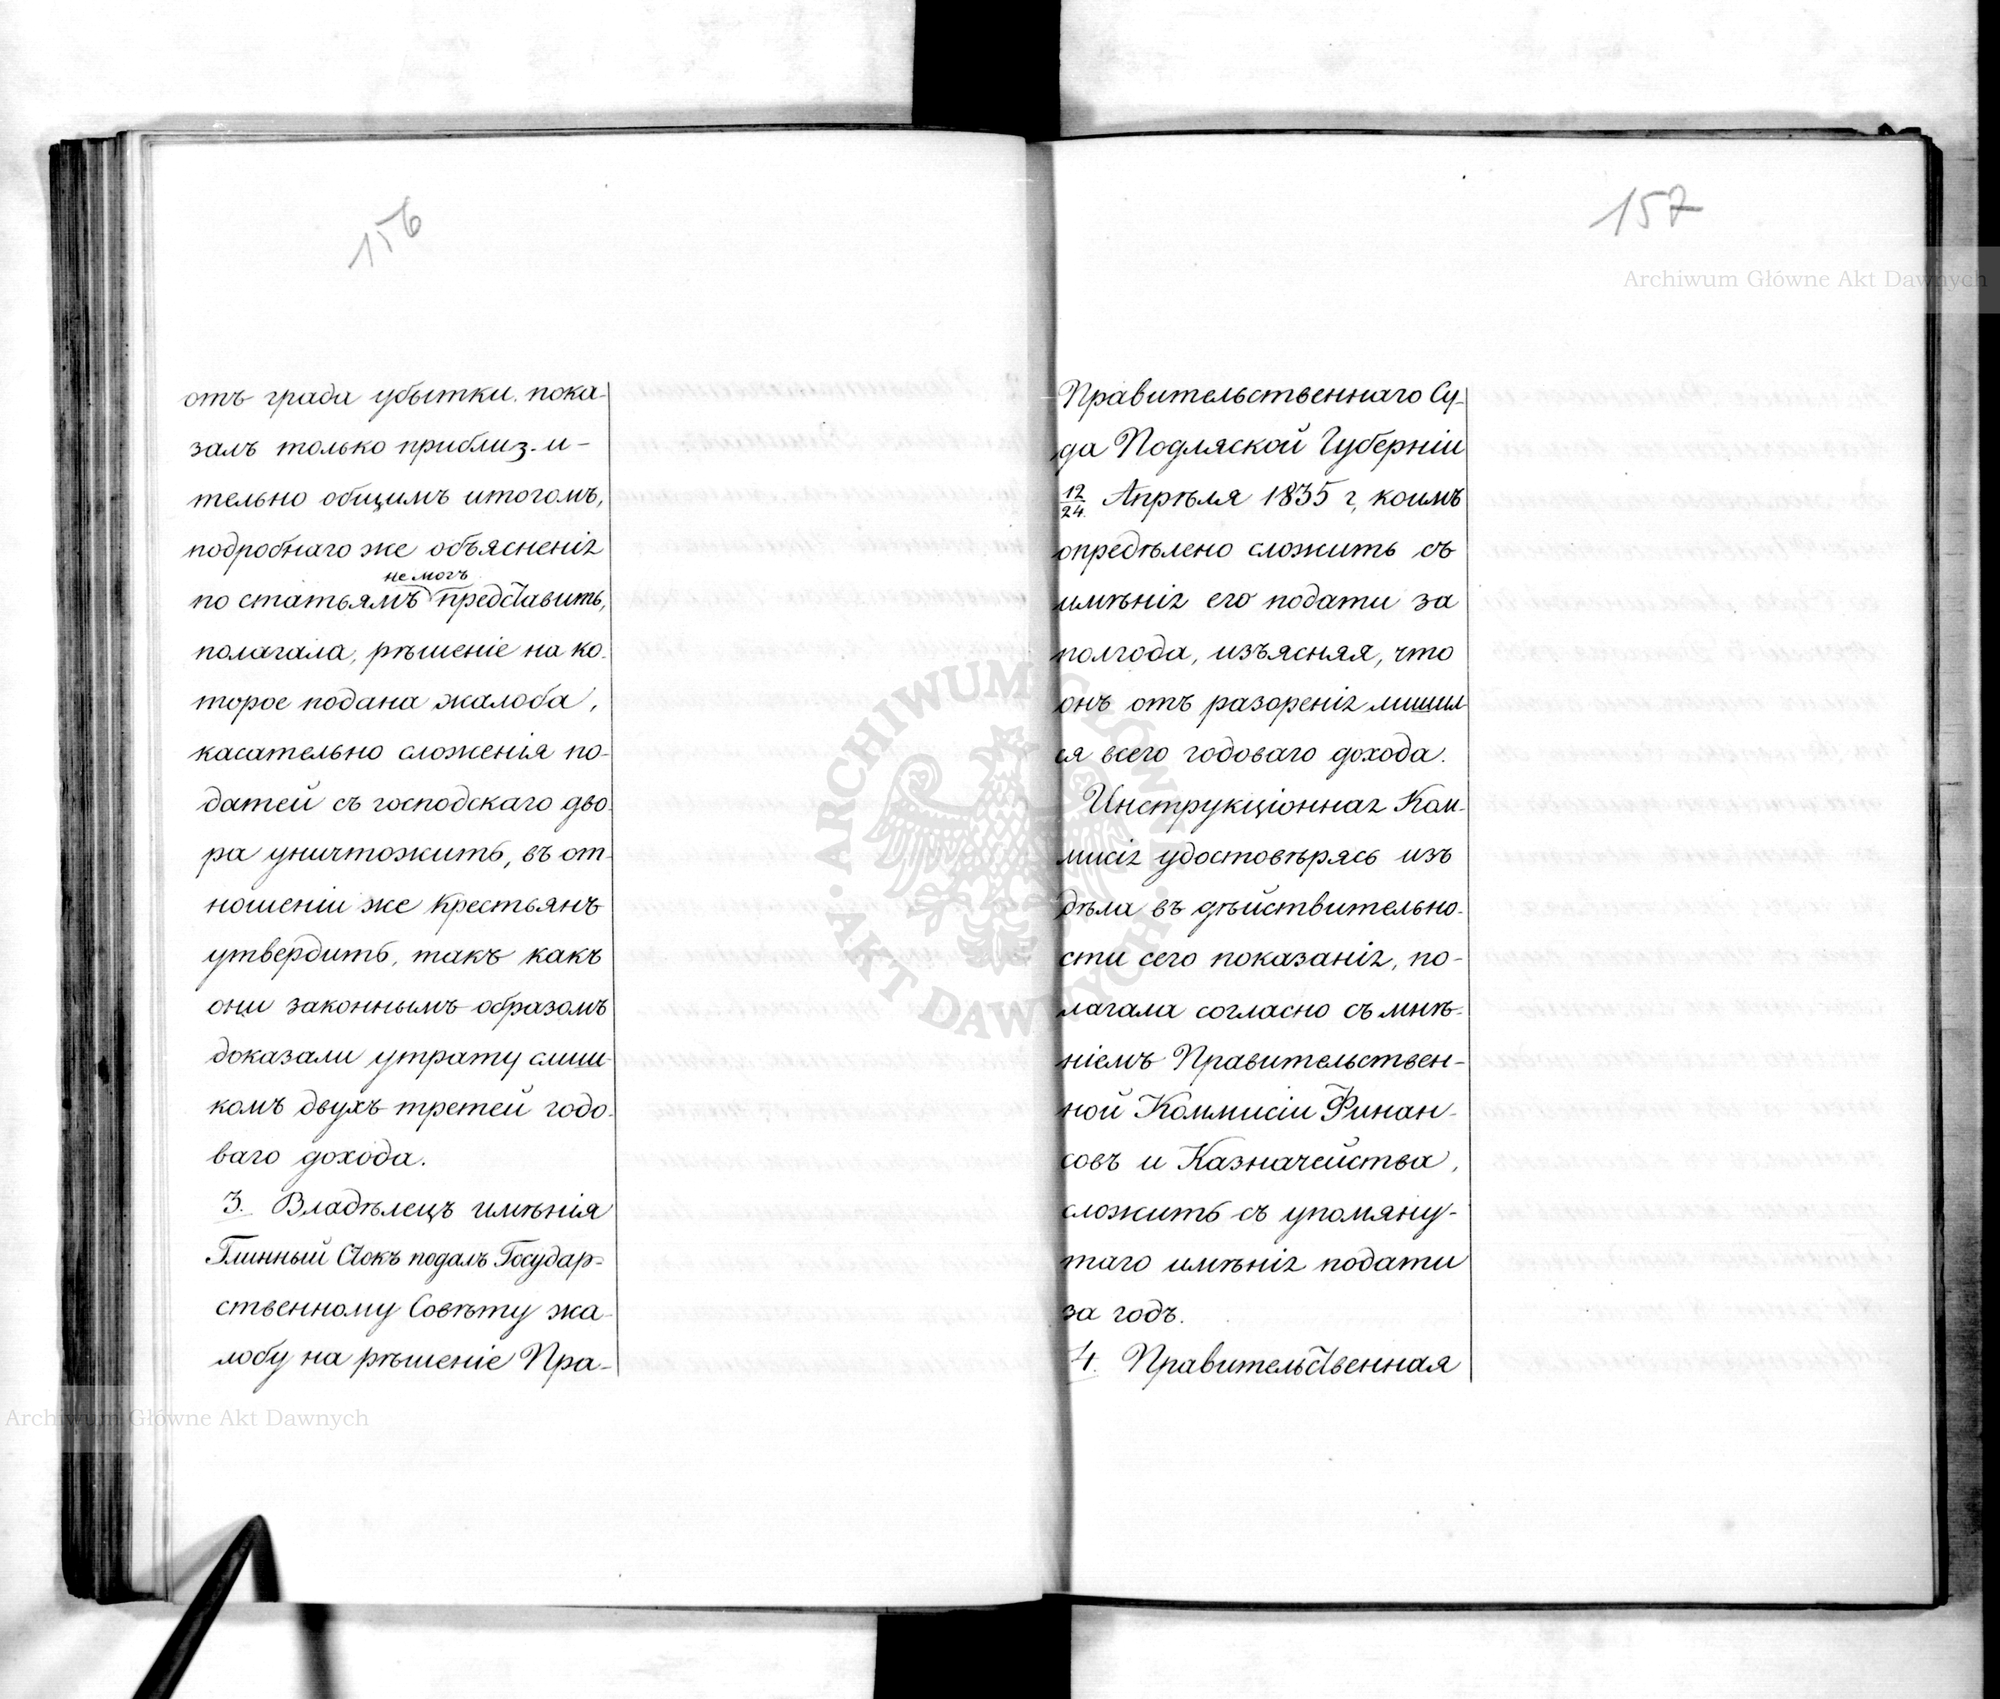 156
отъ града убытки пока-
залъ только приблизи-
тельно общимъ итогомъ,
подробнаго же объясненія
не могъ
по статьямъ представить,
полагала, рѣшеніе на ко-
торое подана жалоба,
касательно сложенія по-
датей съ господскаго дво-
ра уничтожить, въ от-
ношеніи же крестьянъ
утвердить, такъ какъ
они законнымъ образомъ
доказали утрату слиш-
комъ двухъ третей годо-
ваго дохода.
3. Владѣлецъ имѣнія
Глинный Стокъ подалъ Государ-
ственному Совѣту жа-
лобу на рѣшеніе Пра-
157
Правительственнаго Су-
да Подляской Губерніи
12/24 Апрѣля 1835 г, коимъ
опредѣлено сложить съ
имѣнія его подати за
полгода, изъясняя, что
онъ отъ разоренія лишил
ся всего годоваго дохода.
Инструкціонная Ком-
мисія удостовѣрясь изъ
дѣла въ дѣйствительно-
сти сего показанія, по-
лагала согласно съ мнѣ-
ніемъ Правительствен-
ной Коммисіи Финан-
совъ и Казначейства,
сложить съ упомяну-
таго имѣнія подати
за годъ.
4. Правительственная
Archiwum Główne Akt Dawnych
Archiwum Główne Akt Dawnych
ARCHIWUM GŁÓWNE AKT DAWNYCH